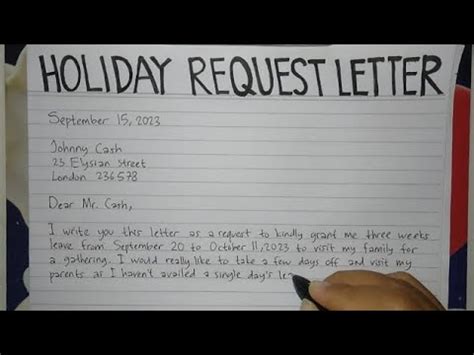 HOLIDAY REQUEST LETTER
September 15, 2023
Johnny Cash
25 Elysian Street
London 236578
Dear Mr. Cash,
I write you this letter as a request to kindly grant me three weeks
leave from September 20 to October 11, 2023 to visit my family for
a gathering. I would really like to take a few days off and visit my
parents as I haven't availed a single day's le